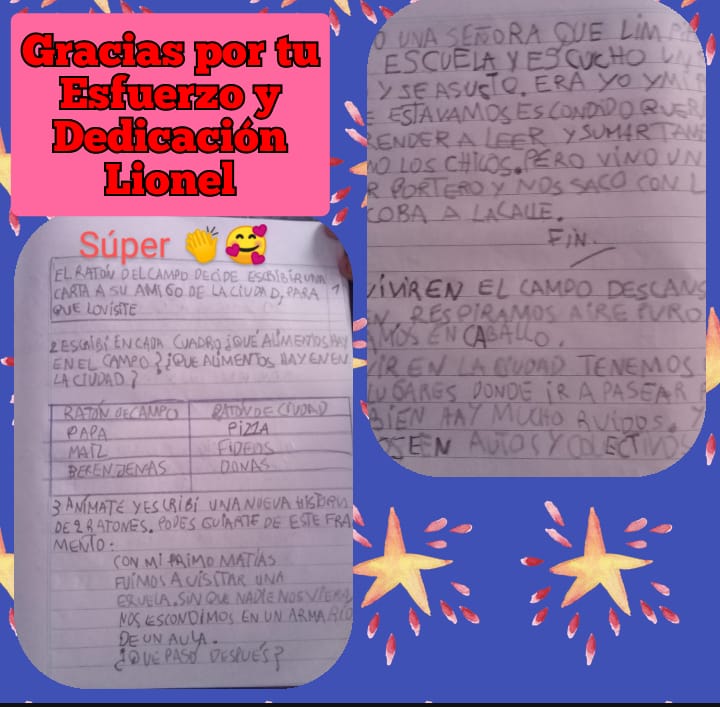 Gracias por tu
Esfuerzo y
Dedicación
Lionel
Súper
EL RATÓN DEL CAMPO DECIDE ESCRIBIR UNA
CARTA A SU AMIGO DE LA CIUDAD, PARA
QUE LO VISITE
2 ESCRIBÍ EN CADA CUADRO ¿QUÉ ALIMENTOS HAY
EN EL CAMPO? ¿QUE ALIMENTOS HAY EN EN
LA CIUDAD?
RATÓN DE CAMPO RATÓN DE CIUDAD
PAPA PIZZA
MAIZ FIDEOS
BERENJENAS DONAS
3 ANÍMATE Y ESCRIBÍ UNA NUEVA HISTORIA
DE 2 RATONES. PODES GUIARTE DE ESTE FRA
MENTO:
CON MI PRIMO MATÍAS
FUIMOS A VISITAR UNA
ESCUELA. SIN QUE NADIE NOS VIERA
NOS ESCONDIMOS EN UN ARMARIO
DE UN AULA.
¿QUE PASÓ DESPUÉS?
O UNA SEÑORA QUE LIMPIA
ESCUELA Y ESCUCHO UN
Y SE ASUSTO. ERA YO Y MI
E ESTAVAMOS ESCONDIDO QUERI
RENDER A LEER Y SUMAR TAMB
O LOS CHICOS. PERO VINO UN
R PORTERO Y NOS SACO CON L
COBA A LA CALLE.
FIN.
VIVIR EN EL CAMPO DESCANS
RESPIRAMOS AIRE PURO
AMOS EN CABALLO.
IR EN LA CIUDAD TENEMOS
LUGARES DONDE IR A PASEAR
BIEN HAY MUCHO RUIDOS. Y
SEEN AUTOS Y COLECTIVOS